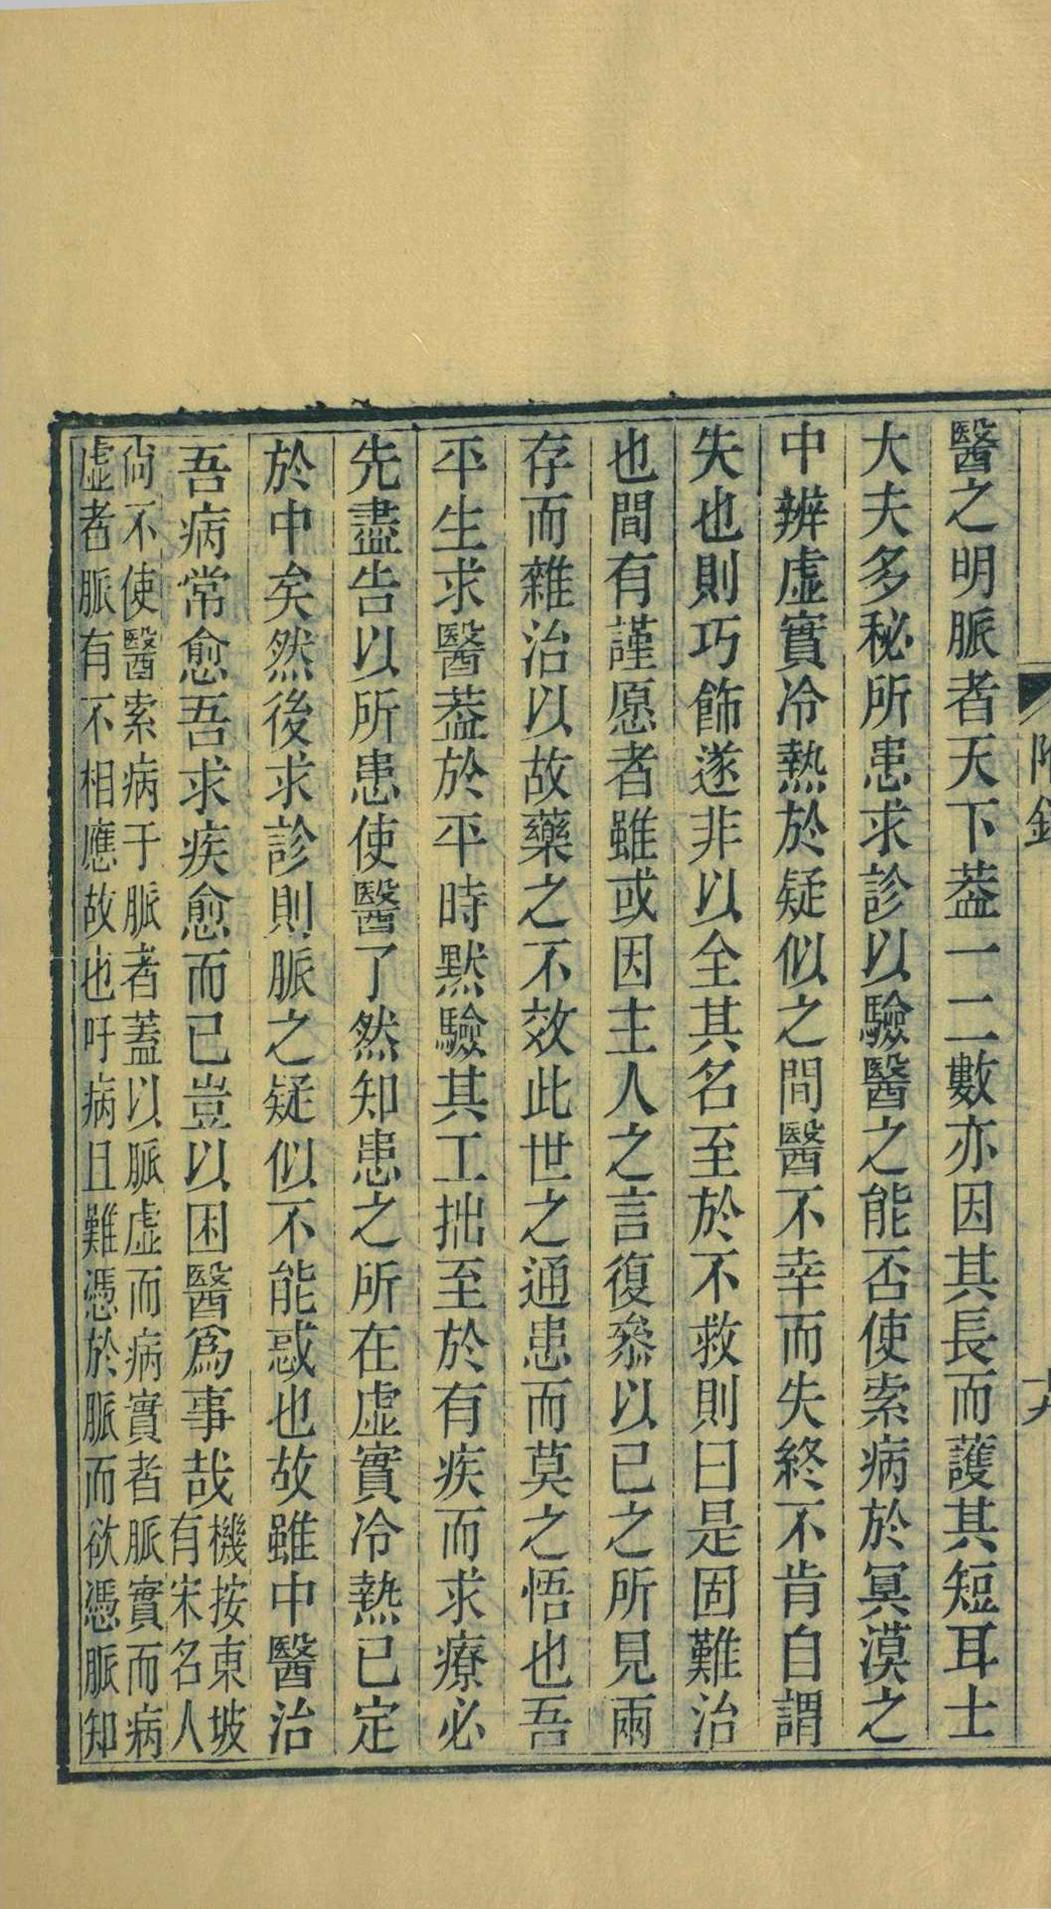 附錄
十九
醫之明脈者天下葢一二數亦因其長而護其短耳士
大夫多秘所患求診以驗醫之能否使索病於冥漠之
中辨虛實冷熱於疑似之間醫不幸而失終不肯自謂
失也則巧飾遂非以全其名至於不救則曰是固難治
也間有謹愿者雖或因主人之言復叅以已之所見兩
存而雜治以故藥之不效此世之通患而莫之悟也吾
平生求醫葢於平時黙驗其工拙至於有疾而求療必
先盡告以所患使醫了然知患之所在虛實冷熱已定
於中矣然後求診則脈之疑似不能惑也故雖中醫治
吾病常愈吾求疾愈而已豈以困醫爲事哉
機按東坡
有宋名人
尙不使醫索病于脈者蓋以脈虛而病實者脈實而病
虛者脈有不相應故也吁病且難憑於脈而欲憑脈知